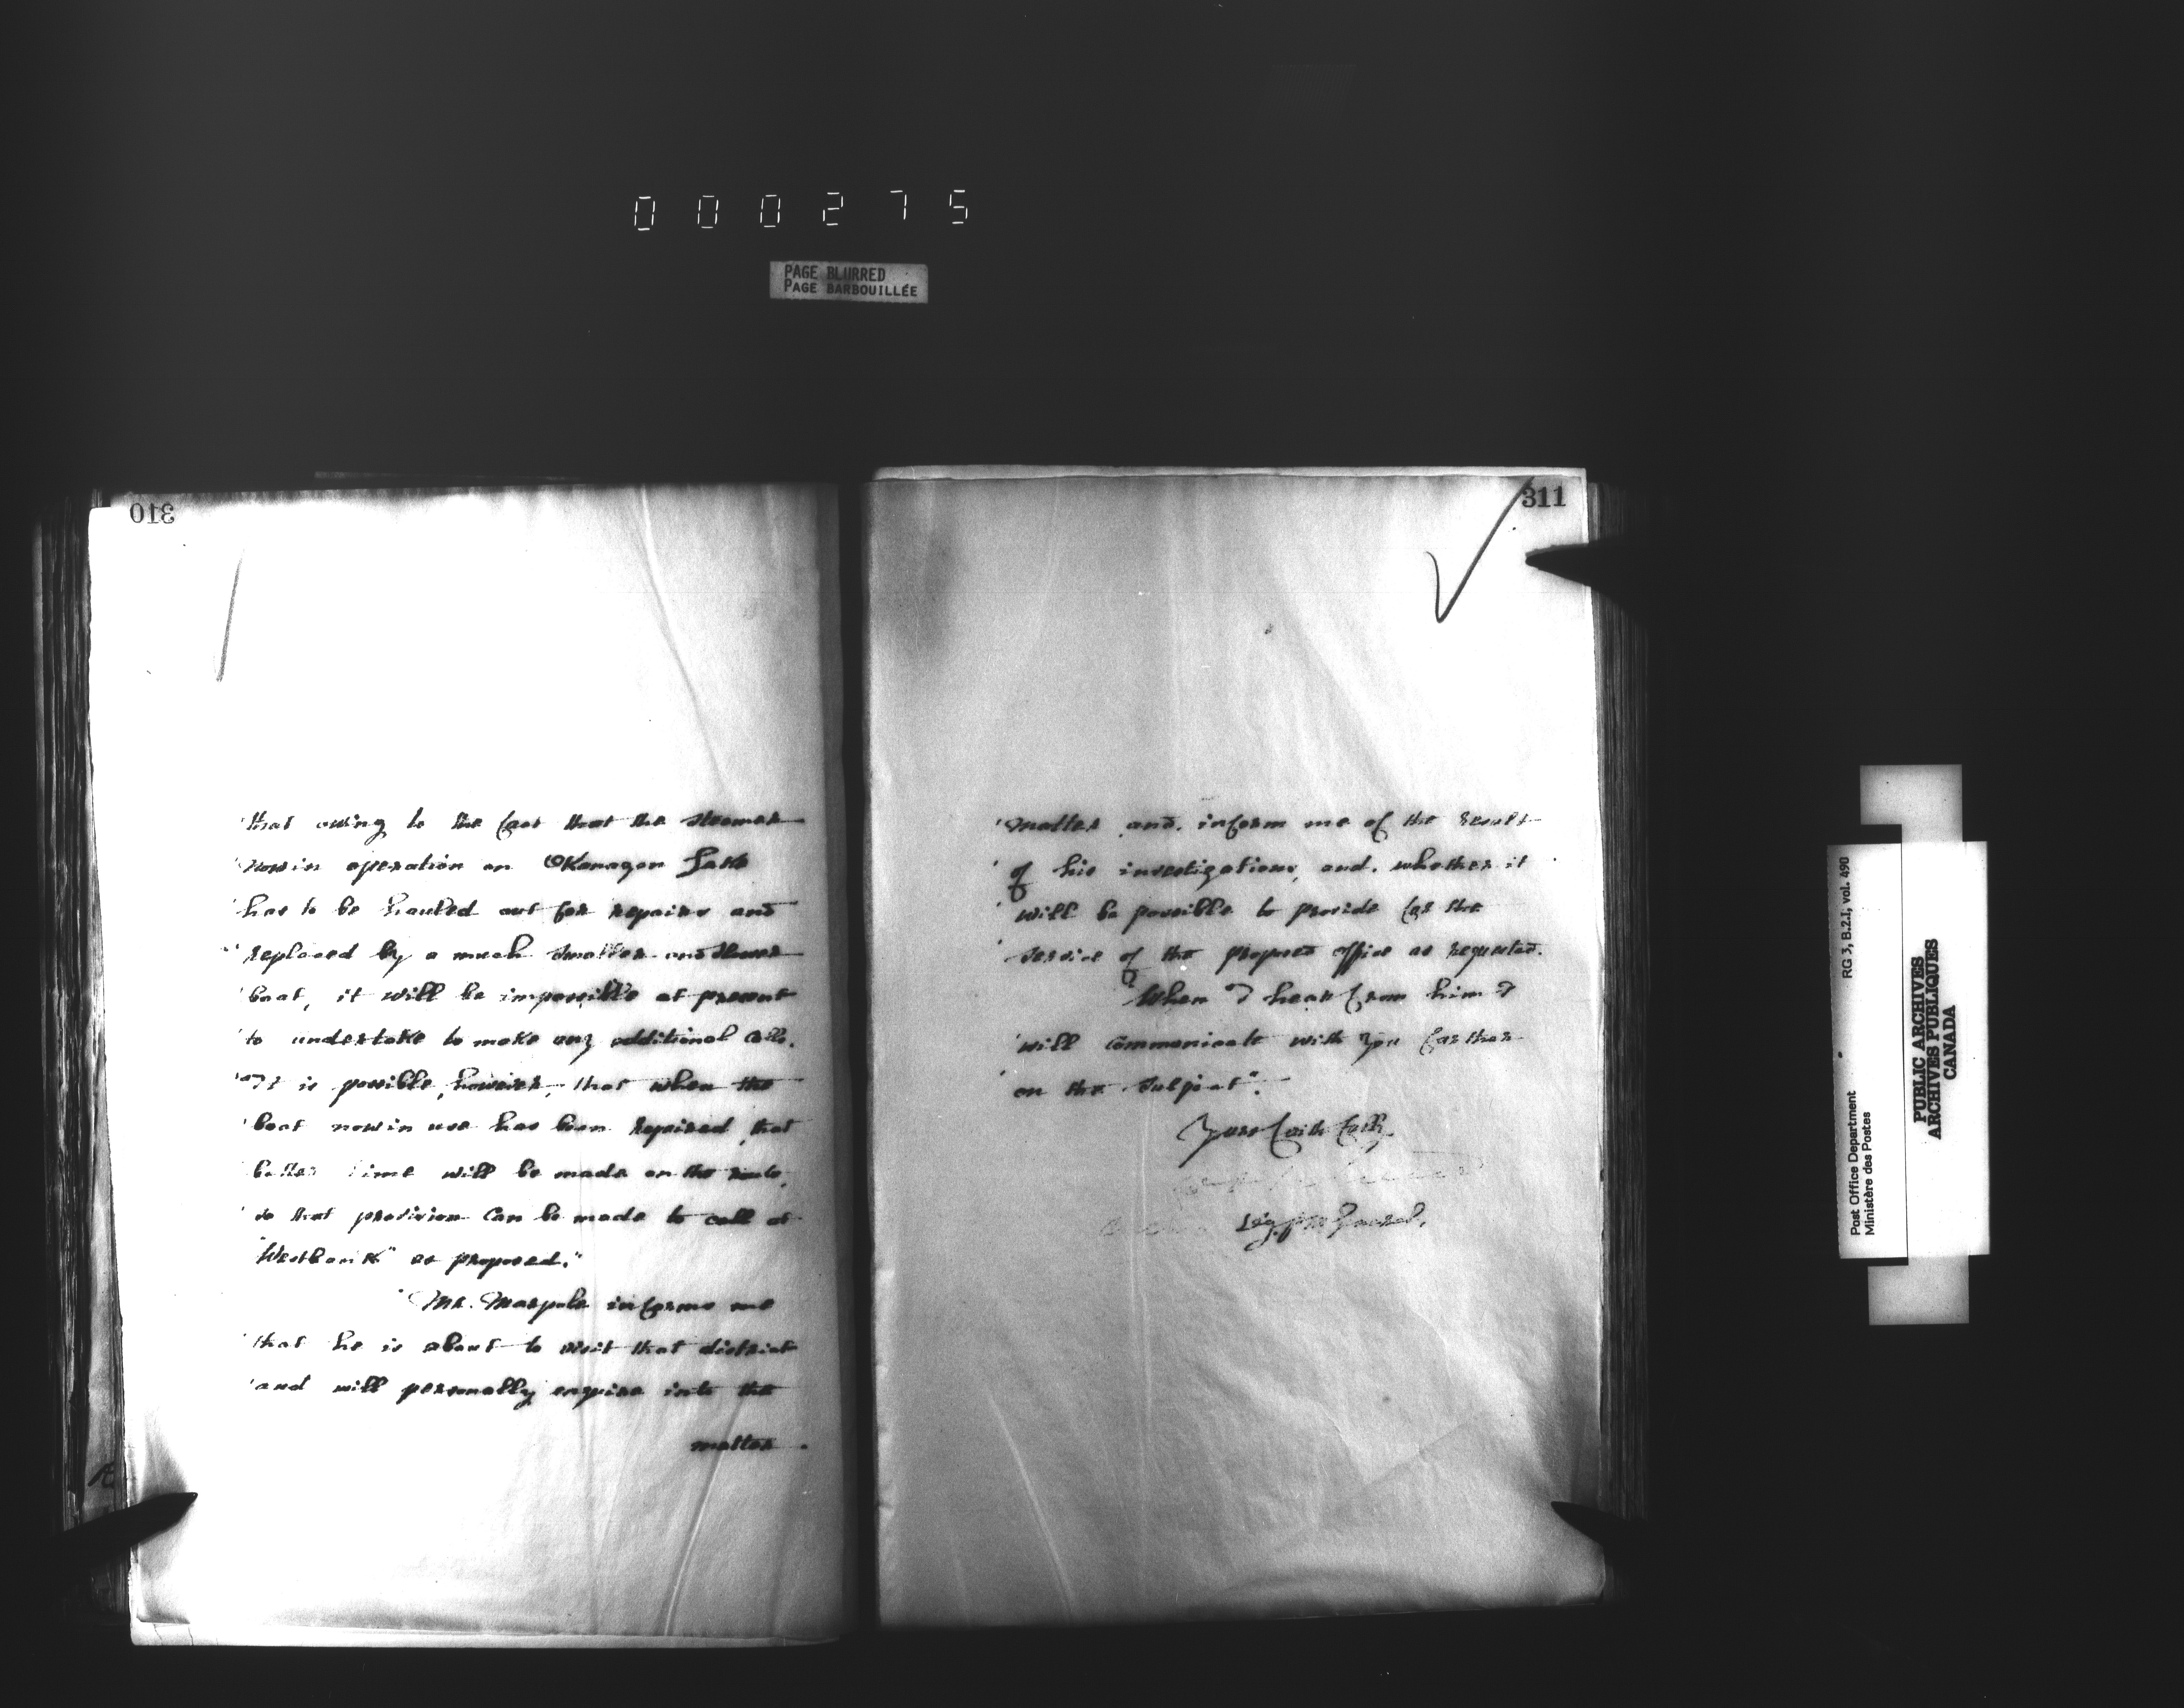 000275
PAGE BLURRED
PAGE BARBOUILLÉE
310
'that owing to the fact that the steamer
'now in operation on Okanagon Lake
'has to be hauled out for repairs and
'replaced by a much smaller and slower
'boat, it will be impossible at present
'to undertake to make any additional calls.
'"It is possible, however, that when the
'boat now in use has been repaired, that
'better time will be made on the route,
'so that provision can be made to call at
"Westbank" as proposed."
"Mr. Marpole informs me
'that he is about to visit that district
'and will personally enquire into the
matter.
311
'matter and inform me of the result
'of his investigations, and whether it
'will be possible to provide for the
'service of the proposed office as requested.
"When I hear from him I
'will communicate with you further
on the subject".
Yours faithfully,
Sig.
RG 3, B.2.1, vol. 490
Post Office Department
Ministère des Postes
PUBLIC ARCHIVES
ARCHIVES PUBLIQUES
CANADA